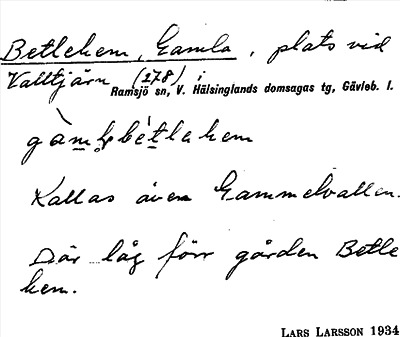 Betlehem, Gamla, plats vid
Valltjärn (278) i
Ramsjö sn, V. Hälsinglands domsagas tg, Gävleb. l.
Kallas även Gammelvallen.
Där låg förr gården Betle
hem.
LARS LARSSON 1934